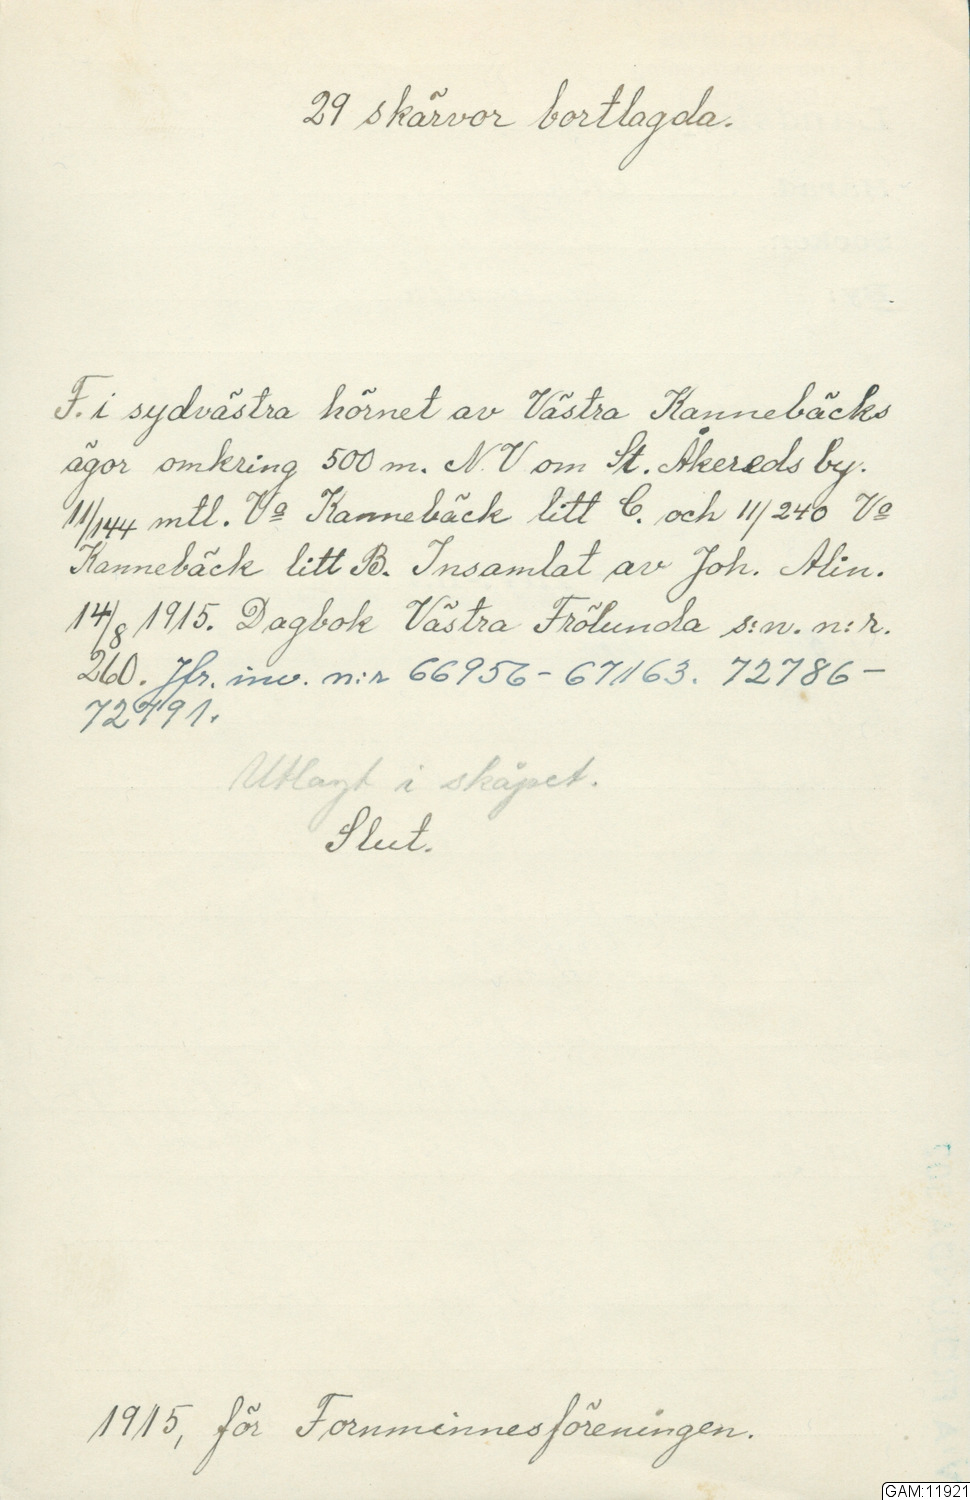 29 skärvor bortlagda.
F. i sydvästra hörnet av Västra Kannebäcks
ägor omkring 500 m. N.V om St. Åkereds by.
11/144 mtl. Va Kannebäck litt C. och 11/240 Va
Kannebäck litt B. Insamlat av Joh. Alin.
14/8 1915. Dagbok Västra Frölunda s:n. n:r.
260. Jfr. inv. n:r 66956-67163. 72786-
72791.
Utlagt i skåpet.
Slut.
1915, för Fornminnesföreningen.
GAM:11921